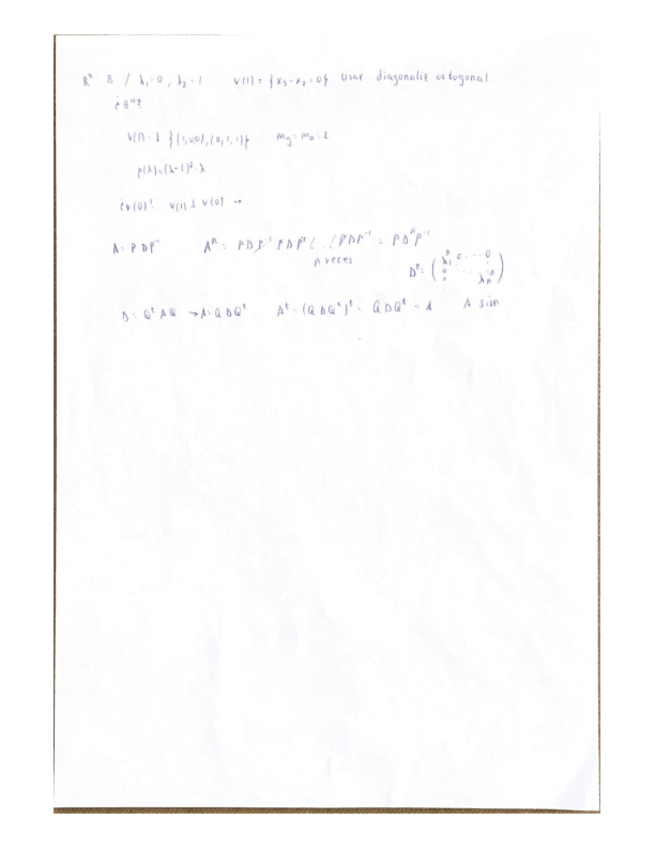 B / λ₁=0, λ₂=1 V(1) = {x₃-x₂=0} usar diagonaliz ortogonal
¿Bⁿ?
V(1) = {(1,0,0),(0,1,1)} mg = ma = 2
p(λ)=(λ-1)²·λ
¿V(0)? V(1) ⊥ V(0) →
A = PDP⁻¹ Aⁿ = PDP⁻¹ PDP⁻¹ (...) PDP⁻¹ = PDⁿP⁻¹
n veces
Dⁿ = (λ₁ⁿ 0 ... 0
0 ... λₙⁿ)
D = QᵗAQ → A = QDQᵗ Aᵗ = (QDQᵗ)ᵗ = QDQᵗ = A A sim